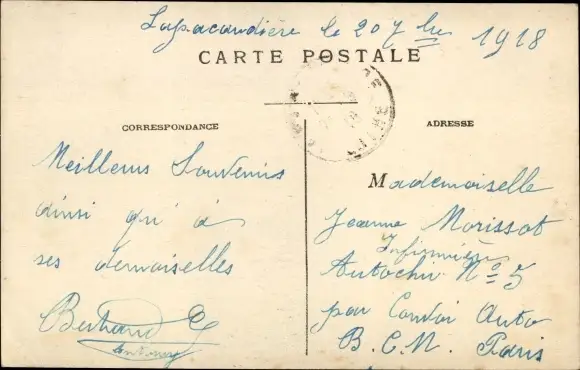 Lapacaudière le 20 7bre 1918
CARTE POSTALE
CORRESPONDANCE
ADRESSE
Meilleurs Souvenirs
ainsi qu'à
ses demoiselles
Bertrand
Mademoiselle
Jeanne Morissot
Infirmière
Autochir Nº 5
par Convoi Auto
B.C.M. Paris